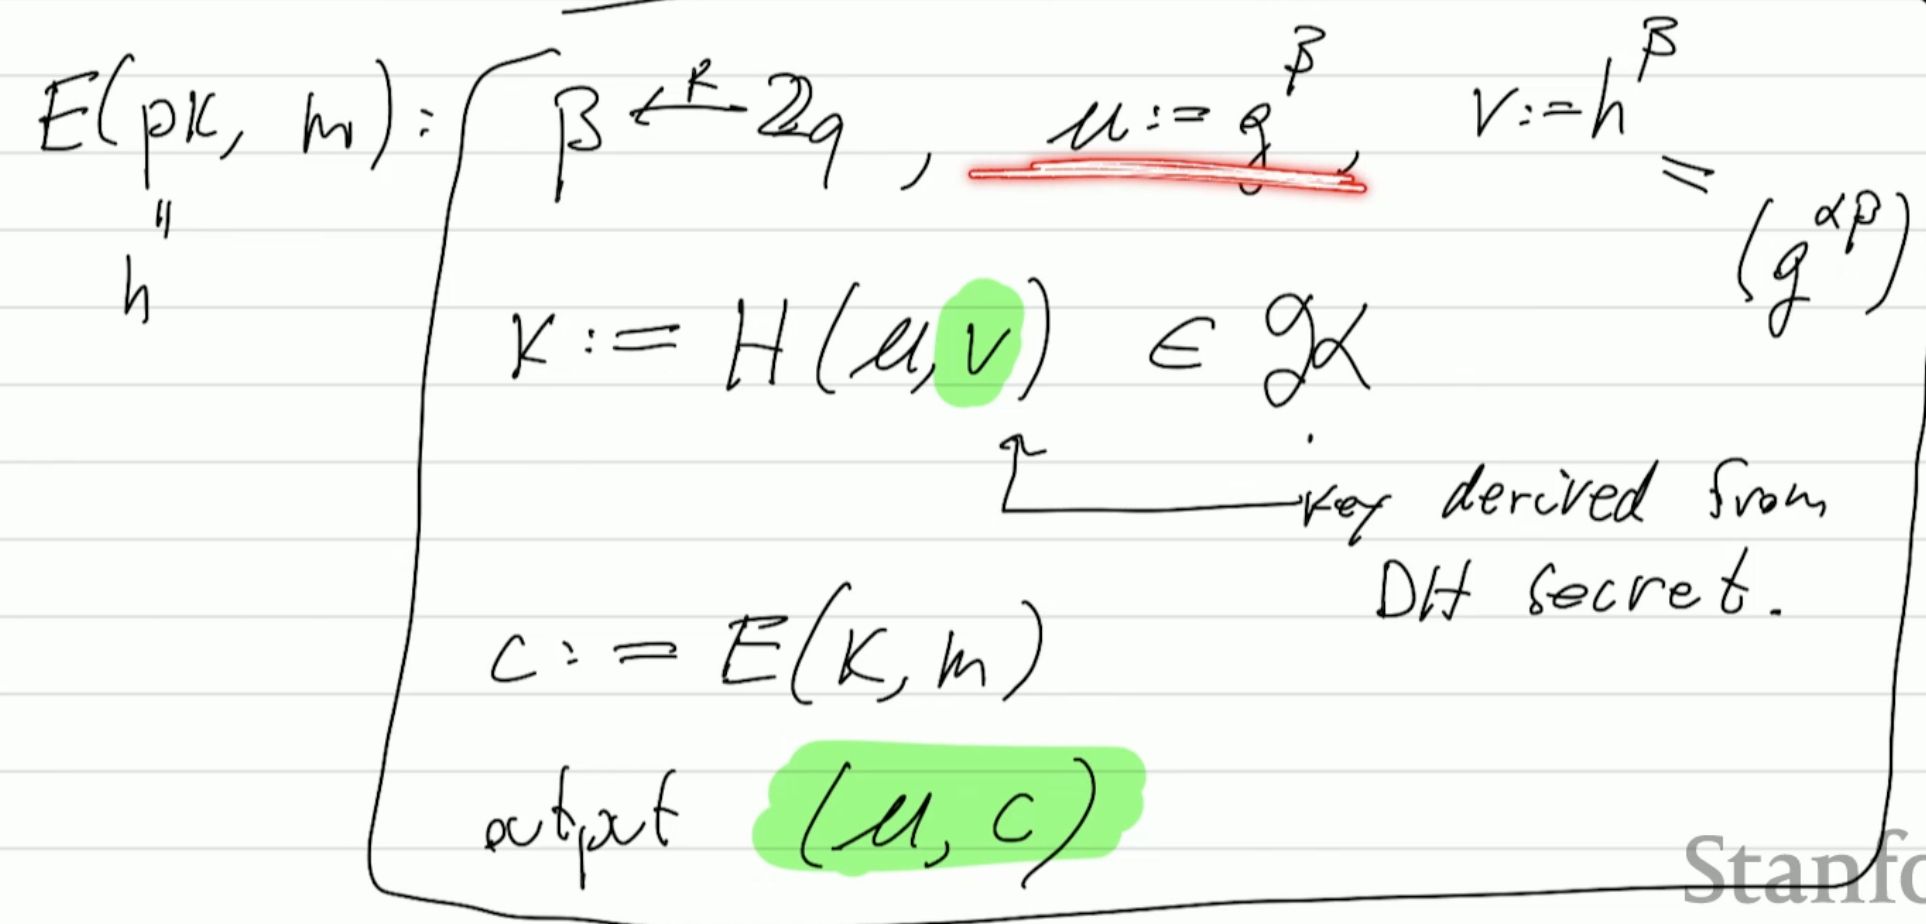 E(pk, m): β ←R Zq, u := g^β, v := h^β
" = (g^αβ)
h
K := H(u, v) ∈ 𝒦
key derived from
DH secret.
c := E(K, m)
output (u, c)
Stanfo